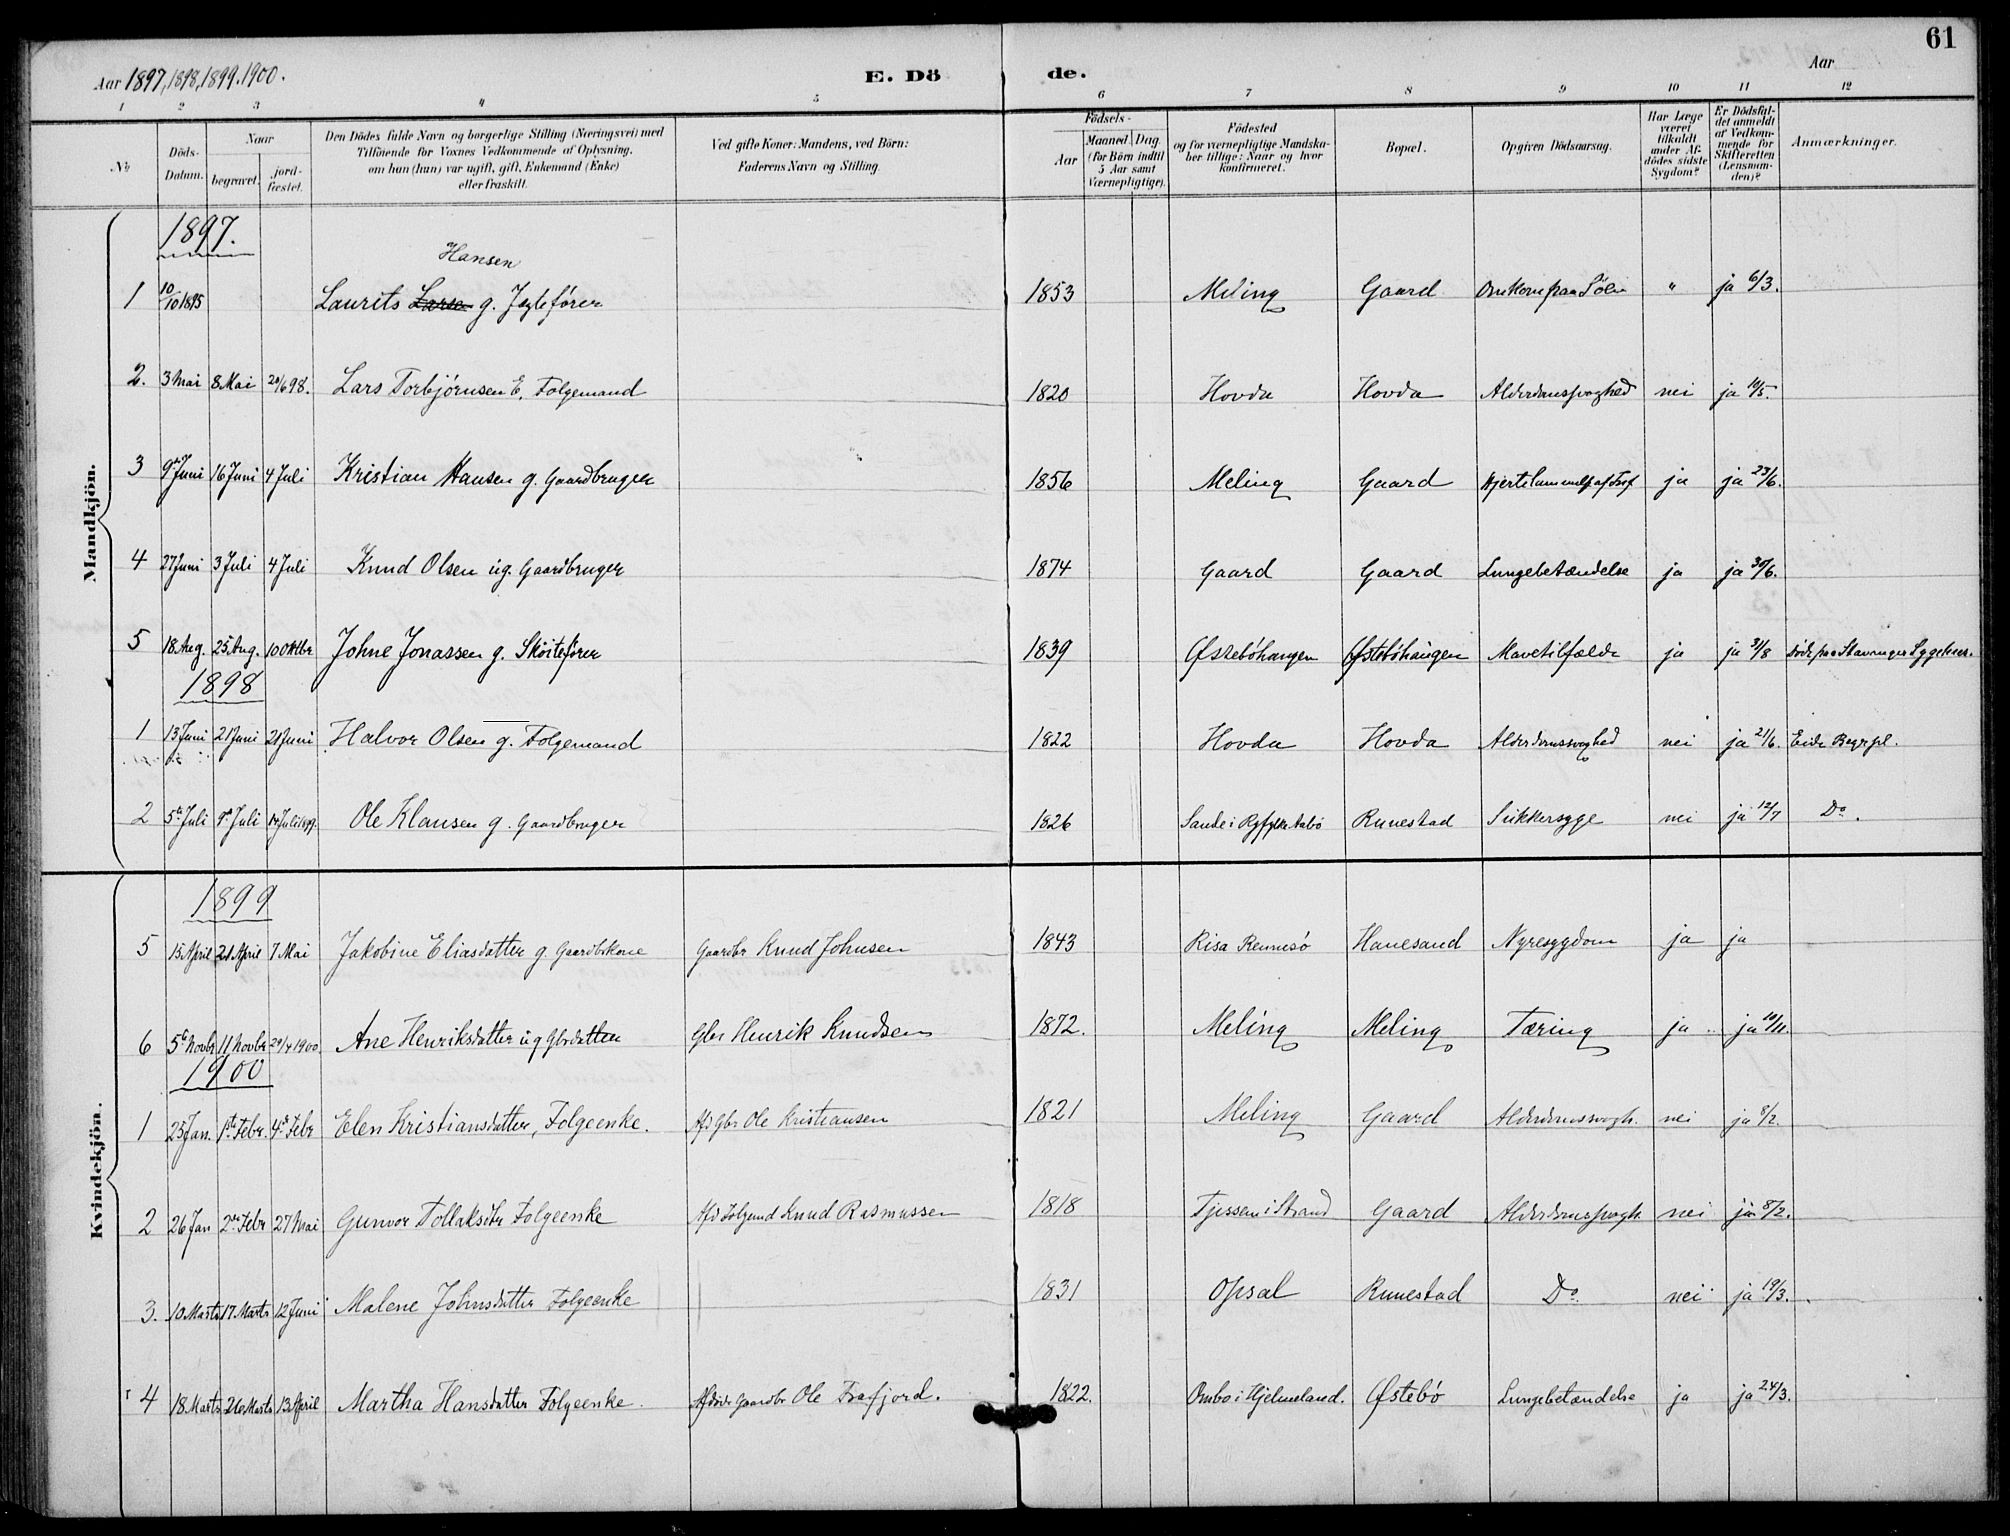 61
Aar 1897, 1898, 1899. 1900.
E. Dö de.
Aar
1 2 3 4 5 6 7 8 9 10 11 12
No
Döds-Datum.
Naar
begravet.
jord-fæstet.
Den Dödes fulde Navn og borgerlige Stilling (Næringsvei) med
Tilföiende for Voxnes Vedkommende af Oplysning,
om hun (hun) var ugift, gift, Enkemand (Enke)
eller fraskilt.
Ved gifte Koner: Mandens, ved Börn:
Faderens Navn og Stilling.
Födsels-
Aar
Maaned. Dag.
(for Börn indtil
5 Aar samt
Værnepligtige).
Födested
og for værnepligtige Mandska-
ber tillige: Naar og hvor
konfirmeret.
Bopæl.
Opgiven Dödsaarsag.
Har Læge
været
tilkaldt
under Af-
dödes sidste
Sygdom?
Er Dödsfal-
det anmeldt
af Vedkom-
mende for
Skifteretten
(Lensman-
den)?
Anmærkninger.
Mandkjön.
1897.
Hansen
1 10/10 1895 Laurits Larsen g. Jagtefører 1853 Meling Gaard Omkom paa Søen " ja 6/3.
2. 3 Mai 8 Mai 20/6 98. Lars Torbjørnsen E. Folgemand 1820 Hovda Hovda Alderdomssvaghed nei ja 10/5.
3 9de Juni 16 Juni 4 Juli Kristian Hansen g. Gaardbruger 1856 Meling Gaard Hjerte ja ja 23/6.
4 27 Juni 3 Juli 4 Juli Knud Olsen ug. Gaardbruger 1874 Gaard Gaard Lungebetændelse ja ja 30/6.
5 18. Aug. 25 Aug. 10 Oktbr Johne Jonassen g. Skøitefører 1839 Østebøhaugen Østebøhaugen Mavetilfælde ja ja 31/8 døde paa Stavanger Sygehus.
1898
1 13 Juni 21 Juni 21 Juni Halvor Olsen g. Folgemand 1822 Hovda Hovda Alderdomssvaghed nei ja 21/6. Eide Begrpl.
2 5te Juli 9de Juli Juli 1899. Ole Klausen g. Gaardbruger 1826 Sande i Ryfylke Runestad Sukkersyge nei ja 12/7 Do.
Kvindekjön.
1899
5 15 April 21 April 7 Mai Jakobine Eliasdatter g. Gaardbkone Gaardbr Knud Johnsen 1843 Risa Rennesø Hanesand Nyresygdom ja ja
6 5te Novbr 11 Novbr 29/4 1900 Ane Henriksdatter ug Gbrdatter Gbr Henrik Knudsen 1872. Meling Meling Tæring ja ja 10/11.
1900
1 25 Jan. 1ste Febr. 4de Febr Elen Kristiansdatter, Folgeenke. Afd Gbr Ole Kristiansen 1821 Meling Gaard Alderdomssvagh. nei ja 8/2.
2 26 Jan 2den Febr 27 Mai Gunvor Tollaksdtr Folgeenke Afd Folgemd Knud Rasmussen 1818 Tjessem i Strand Gaard Alderdomssvagh. nei ja 8/2.
3. 10 Marts 17 Marts 12 Juni Malene Johnsdatter Folgeenke 1831 Opsal Runestad Do. nei ja 19/3.
4 18 Marts 26 Marts 13 April Martha Hansdatter Folgeenke. Afdøde Gaardbr Ole Frafjord. 1822. Ombo i Hjelmeland. Østebø Lungebetændelse ja ja 24/3.